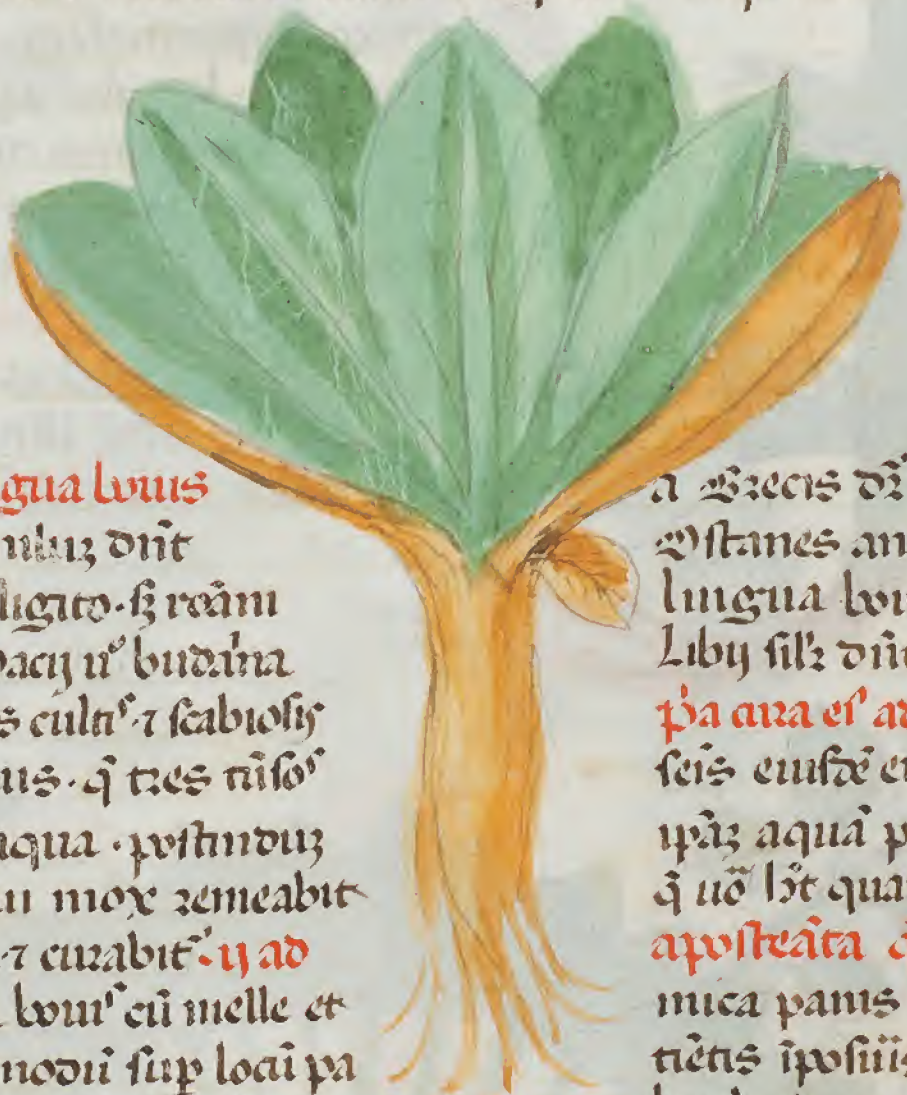 gua bouis
dn̄t
ligito · sꝫ
bacij uº budana
s cultiˢ ⁊ scabiosis
us · q̄ tres tūsoˢ
aqua · postmoduꝫ
mox remeabit
⁊ curabitᵗ · ij ad
bouiˢ cū melle et
modū sup locū pa
a Grecis dr̄
Ostanes an
lingua bou
Libij silꝫ dn̄t
p̄a cura eiˢ
seis eiusdē
ip̄aꝫ aquā p
q̄ uō hꝫt qua
apostēata
mica panis
tiētis īposuis